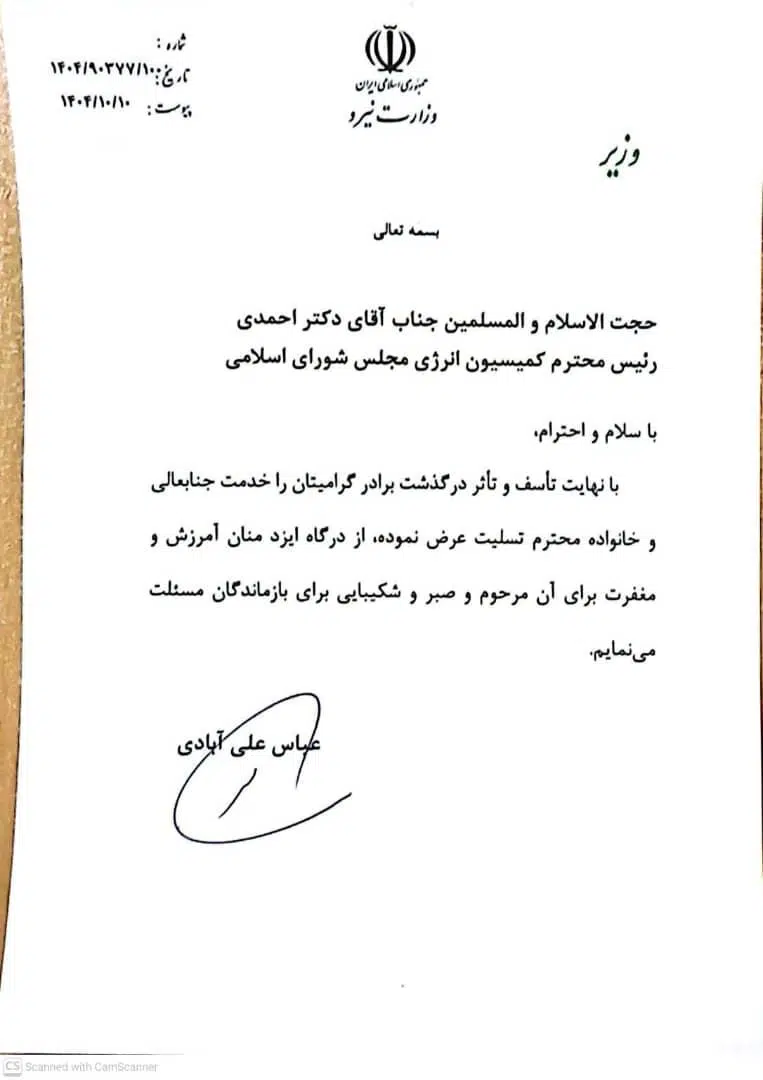 جمهوری اسلامی ایران
وزارت نیرو
شماره :
تاریخ : ۱۴۰۴/۹۰۳۷۷/۱۰۰
پیوست : ۱۴۰۴/۱۰/۱۰
وزیر
بسمه تعالی
حجت الاسلام و المسلمین جناب آقای دکتر احمدی
رئیس محترم کمیسیون انرژی مجلس شورای اسلامی
با سلام و احترام،
با نهایت تأسف و تأثر درگذشت برادر گرامیتان را خدمت جنابعالی
و خانواده محترم تسلیت عرض نموده، از درگاه ایزد منان آمرزش و
مغفرت برای آن مرحوم و صبر و شکیبایی برای بازماندگان مسئلت
می‌نمایم.
عباس علی آبادی
CS Scanned with CamScanner